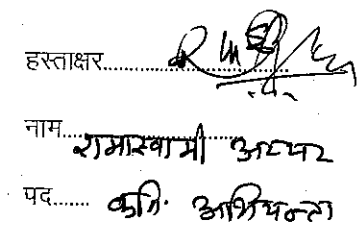 हस्ताक्षर.....................
नाम..... रामास्वामी अय्यर
पद....... कनि. अभियन्ता